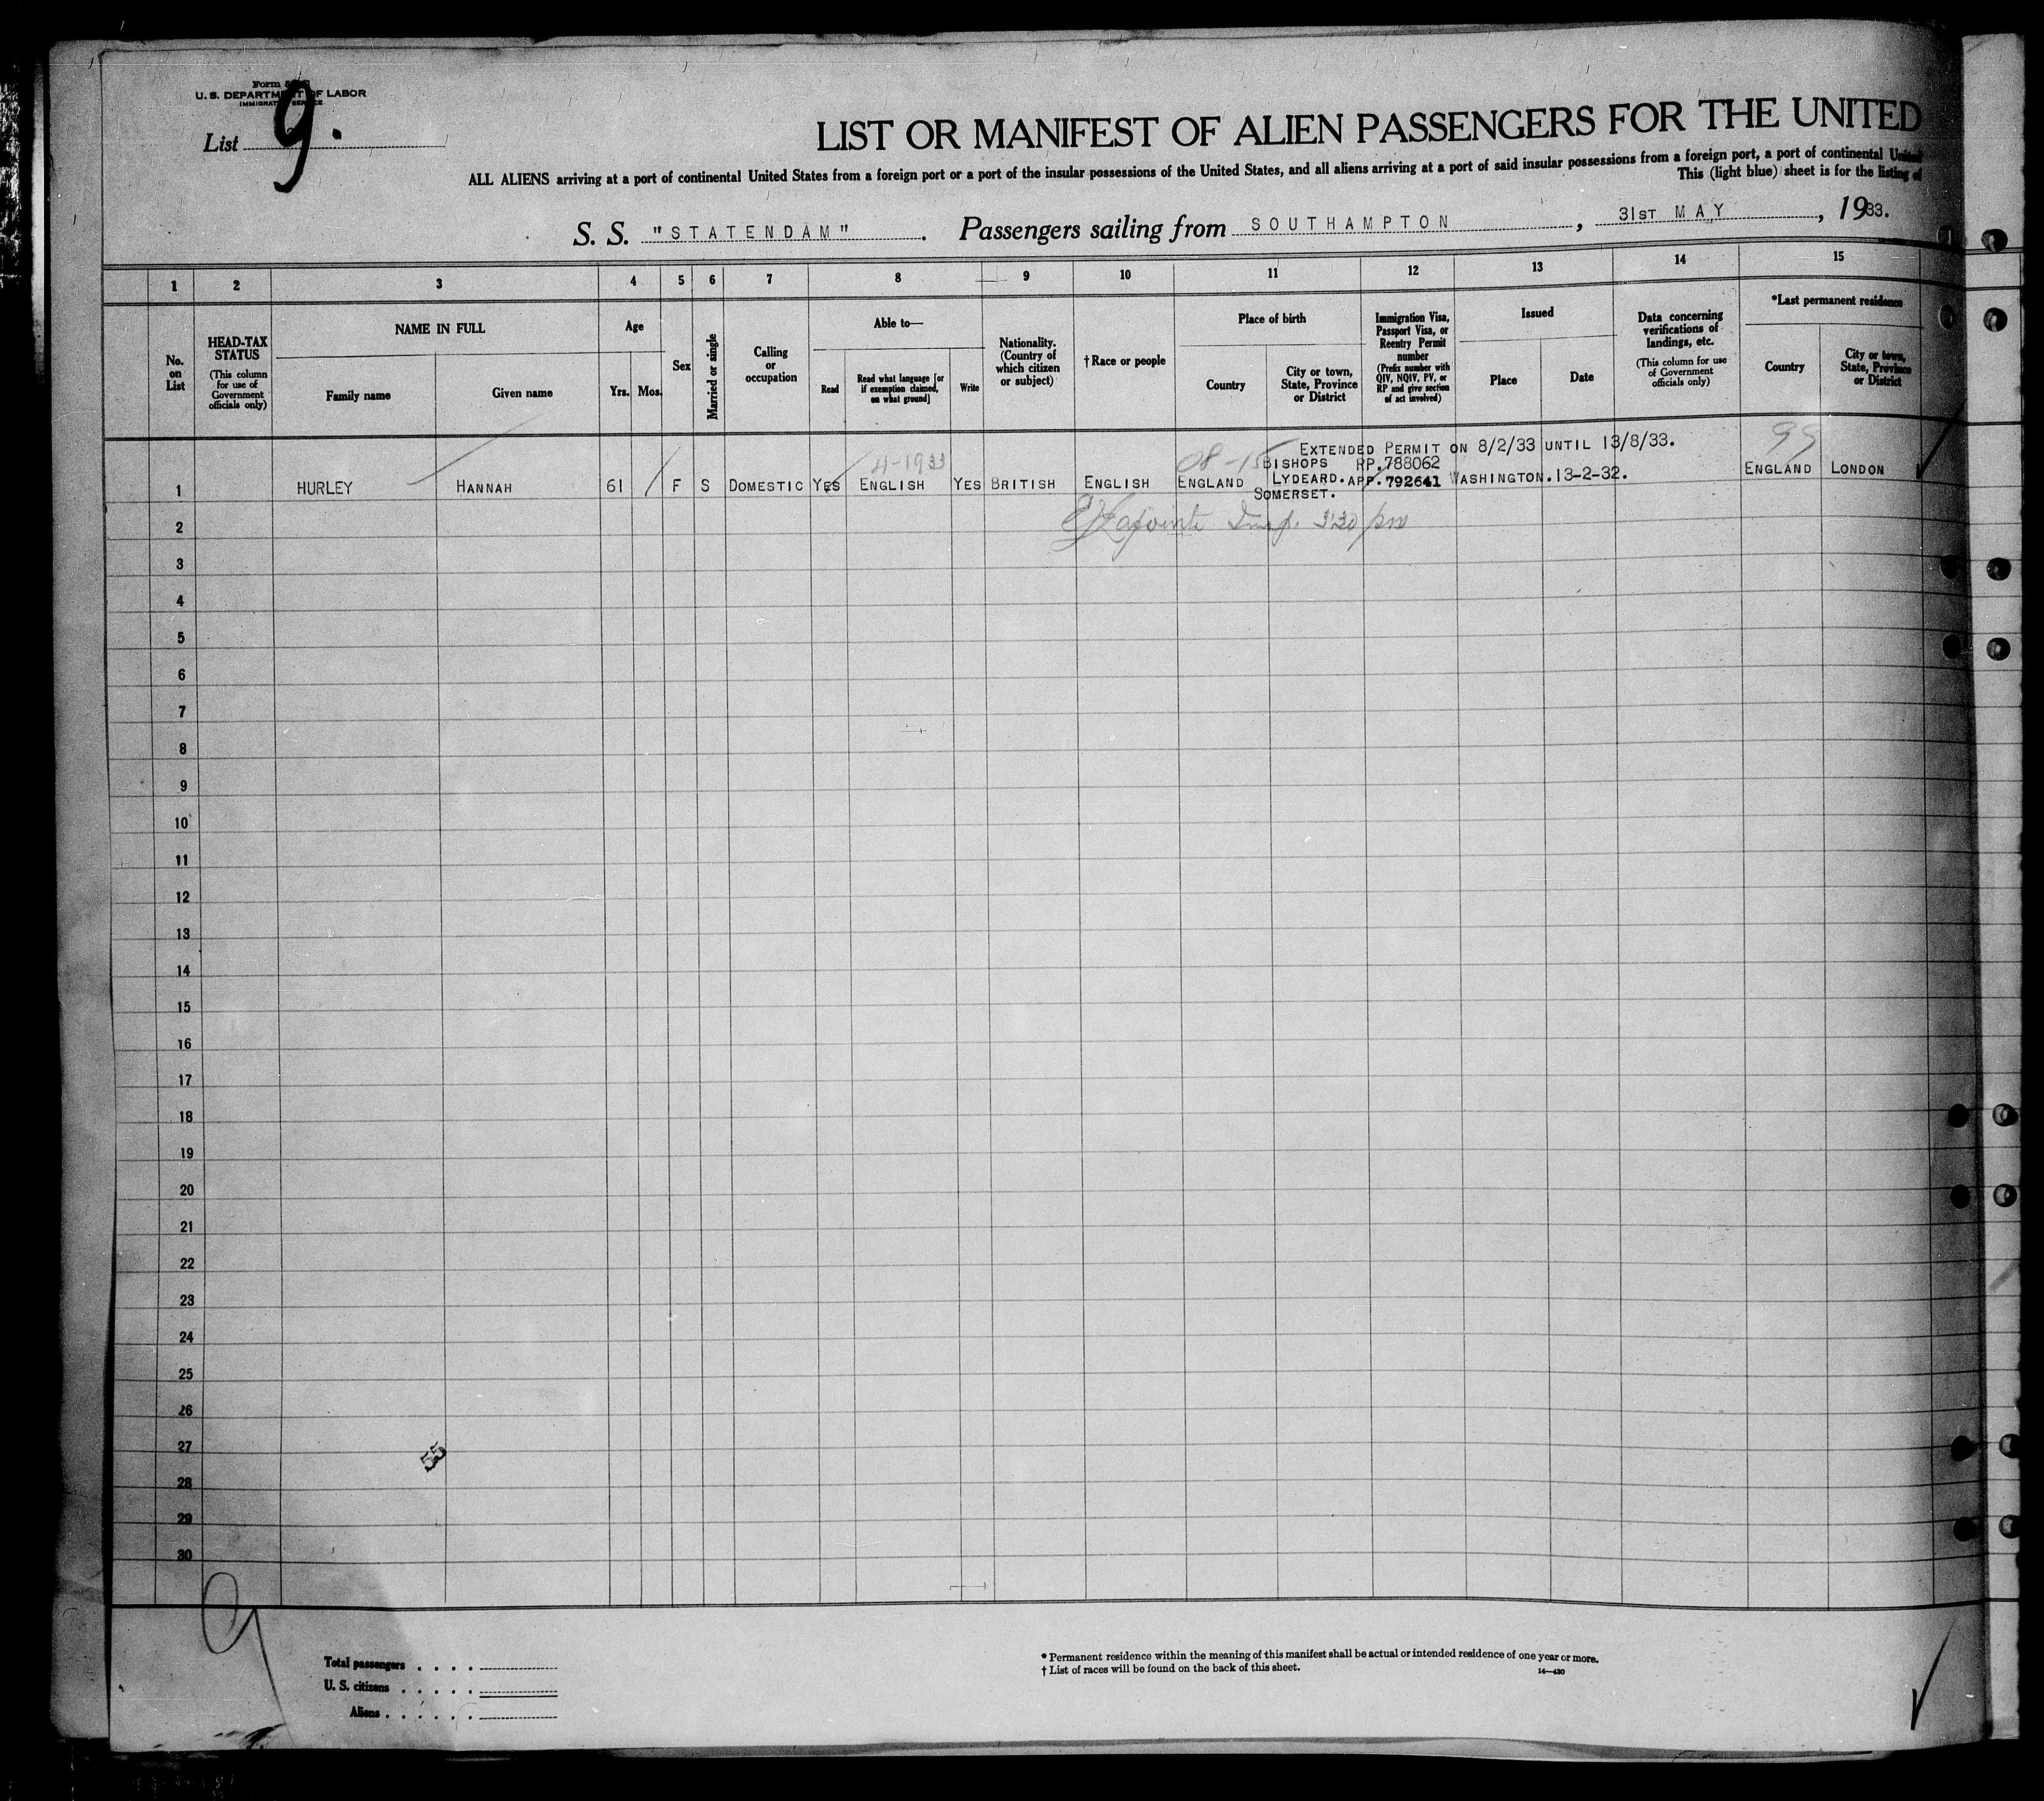 Form 5
U. S. DEPARTMENT OF LABOR
IMMIGRATION SERVICE
List 9.
LIST OR MANIFEST OF ALIEN PASSENGERS FOR THE UNITED
ALL ALIENS arriving at a port of continental United States from a foreign port or a port of the insular possessions of the United States, and all aliens arriving at a port of said insular possessions from a foreign port, a port of continental United
This (light blue) sheet is for the listing of
S. S. "STATENDAM". Passengers sailing from SOUTHAMPTON, 31ST MAY, 1933.
1 2 3 4 5 6 7 8 9 10 11 12 13 14 15
No. on List
HEAD-TAX STATUS (This column for use of Government officials only)
NAME IN FULL
Family name Given name
Age
Yrs. Mos.
Sex
Married or single
Calling or occupation
Able to—
Read
Read what language [or if exemption claimed, on what ground]
Write
Nationality. (Country of which citizen or subject)
† Race or people
Place of birth
Country
City or town, State, Province or District
Immigration Visa, Passport Visa, or Reentry Permit number (Prefix number with QIV, NQIV, PV, or RP and give section of act involved)
Issued
Place Date
Data concerning verifications of landings, etc. (This column for use of Government officials only)
*Last permanent residence
Country
City or town, State, Province or District
4-1933 08-15 EXTENDED PERMIT ON 8/2/33 UNTIL 13/8/33. 99
BISHOPS RP.788062 ENGLAND LONDON
1 HURLEY HANNAH 61 F S DOMESTIC YES ENGLISH YES BRITISH ENGLISH ENGLAND LYDEARD. APP. 792641 WASHINGTON. 13-2-32.
SOMERSET.
2 Lapointe Insp. 3:30 pm
3
4
5
6
7
8
9
10
11
12
13
14
15
16
17
18
19
20
21
22
23
24
25
26
27
55
28
29
30
9
Total passengers . . . .
U. S. citizens . . . . .
Aliens . . . . . .
* Permanent residence within the meaning of this manifest shall be actual or intended residence of one year or more.
† List of races will be found on the back of this sheet. 14—430